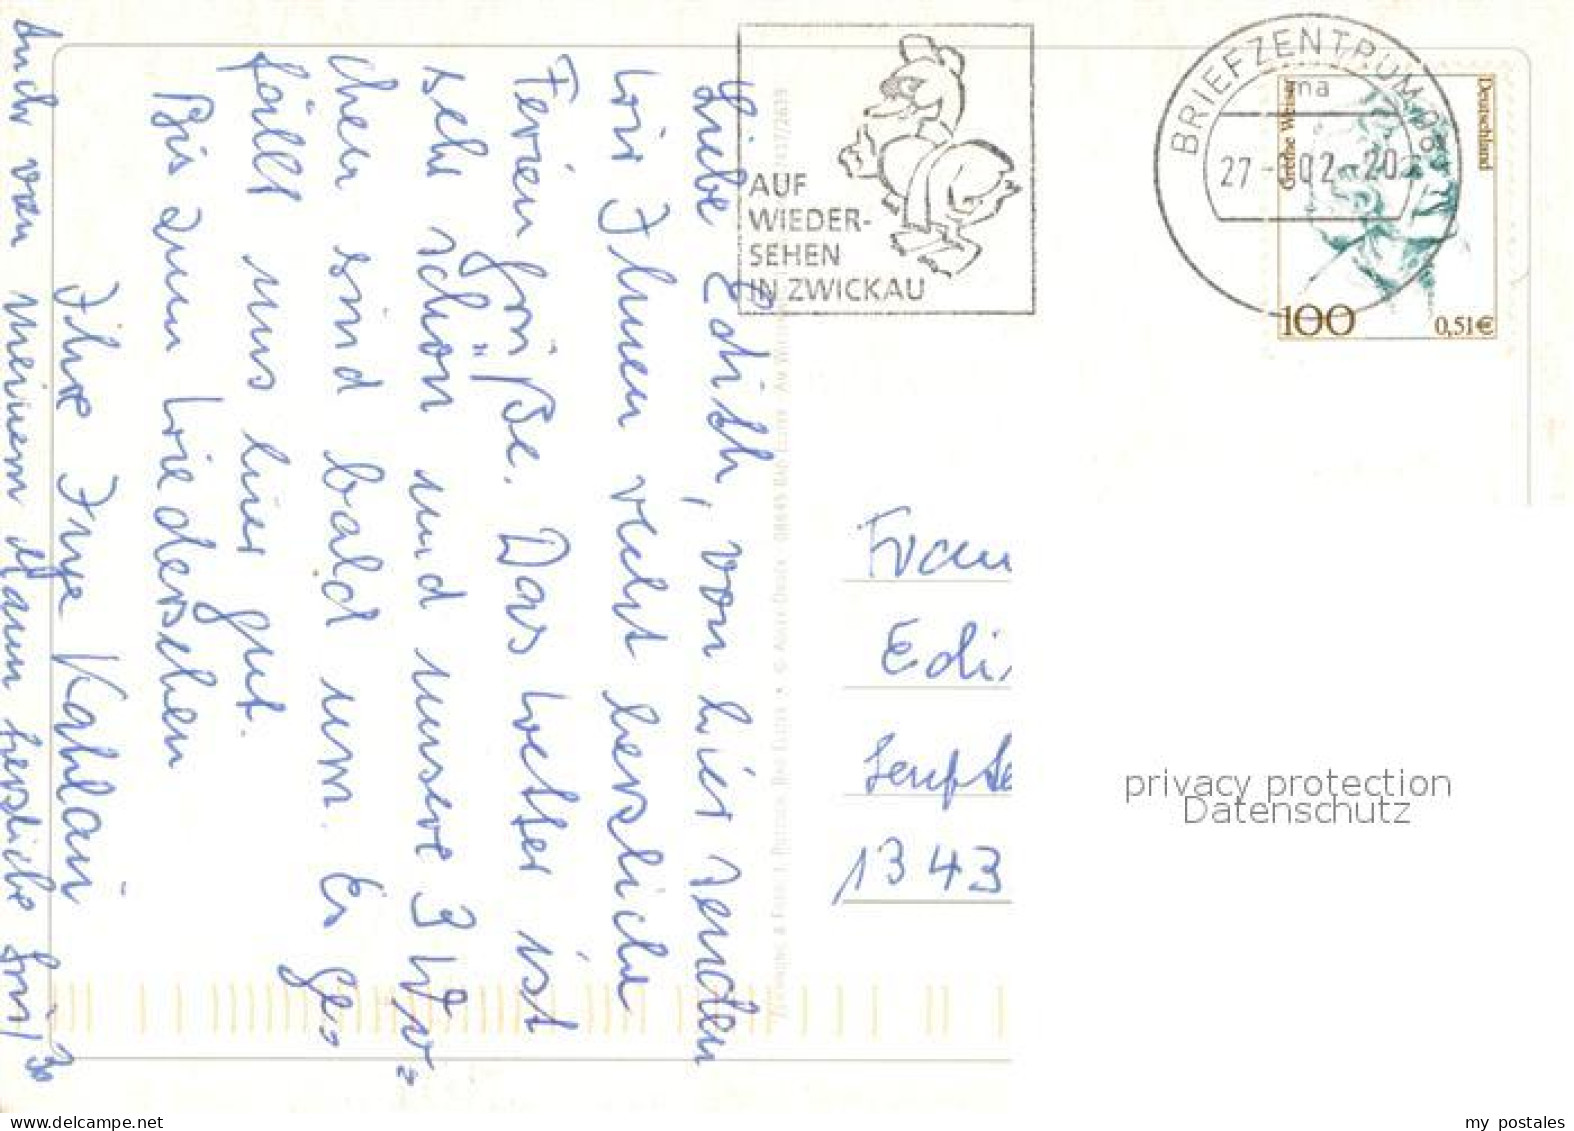 Liebe Edith, von hier senden
wir Ihnen recht herzliche
Feriengrüße. Das Wetter ist
sehr schön und unsere 3 Wo=
chen sind bald um. Es ge=
fällt uns hier gut.
Bis zum Wiedersehen
Ihre Inge
Auch von meinem Mann herzliche Grüße
AUF
WIEDER-
SEHEN
IN ZWICKAU
BRIEFZENTRUM 08
ma
27 - 02 - 20
Deutschland
Grethe Weiser
100
0,51€
Frau
Edi
Senfte
1343
privacy protection
Datenschutz
www.delcampe.net
my postales